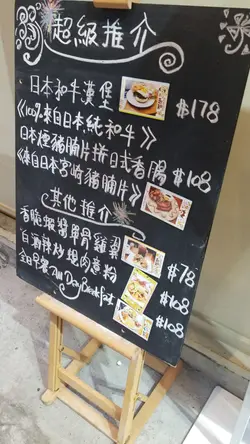 超級推介
日本和牛漢堡 $178
《100%來自日本純和牛》
日本煙豬腩片拼日式香腸
《來自日本宮崎豬腩片》 $108
其他推介
香脆蝦醬單骨雞翼 $78
白酒辣炒燒肉意粉 $108
全日早餐 All Day Breakfast $108